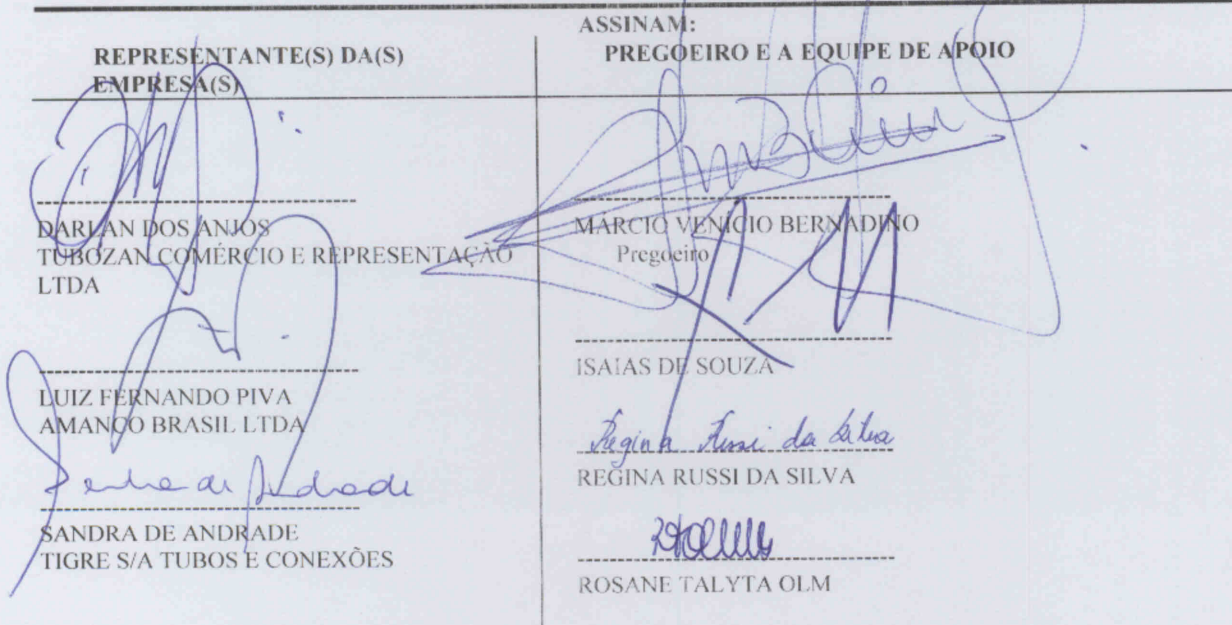 ASSINAM:
REPRESENTANTE(S) DA(S)
EMPRESA(S)
PREGOEIRO E A EQUIPE DE APOIO
DARLAN DOS ANJOS
TUBOZAN COMÉRCIO E REPRESENTAÇÃO
LTDA
LUIZ FERNANDO PIVA
AMANCO BRASIL LTDA
Sandra de Andrade
SANDRA DE ANDRADE
TIGRE S/A TUBOS E CONEXÕES
MÁRCIO VENÍCIO BERNADINO
Pregoeiro
ISAIAS DE SOUZA
Regina Russi da Silva
REGINA RUSSI DA SILVA
ROSANE TALYTA OLM